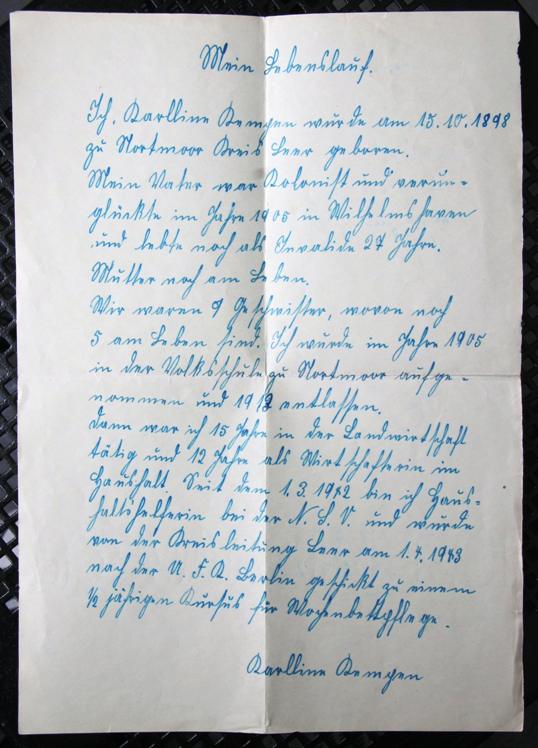 Mein Lebenslauf.
Ich, Karlline Kempen wurde am 15.10.1898
zu Nortmoor Kreis Leer geboren.
Mein Vater war Kolonist und verun-
glückte im Jahre 1905 in Wilhelmshaven
und lebte noch als Invalide 27 Jahre.
Mutter noch am Leben.
Wir waren 9 Geschwister, wovon noch
5 am Leben sind. Ich wurde im Jahre 1905
in der Volksschule zu Nortmoor aufge-
nommen und 1913 entlassen.
Dann war ich 15 Jahre in der Landwirtschaft
tätig und 12 Jahre als Wirtschafterin im
Haushalt. Seit dem 1.3.1942 bin ich Haus-
haltshelferin bei der N.S.V. und wurde
von der Kreisleitung Leer am 1.4.1943
nach der U.F.K. Berlin geschickt zu einem
1/2 jährigen Kursus für Wochenbettpflege.
Karlline Kempen